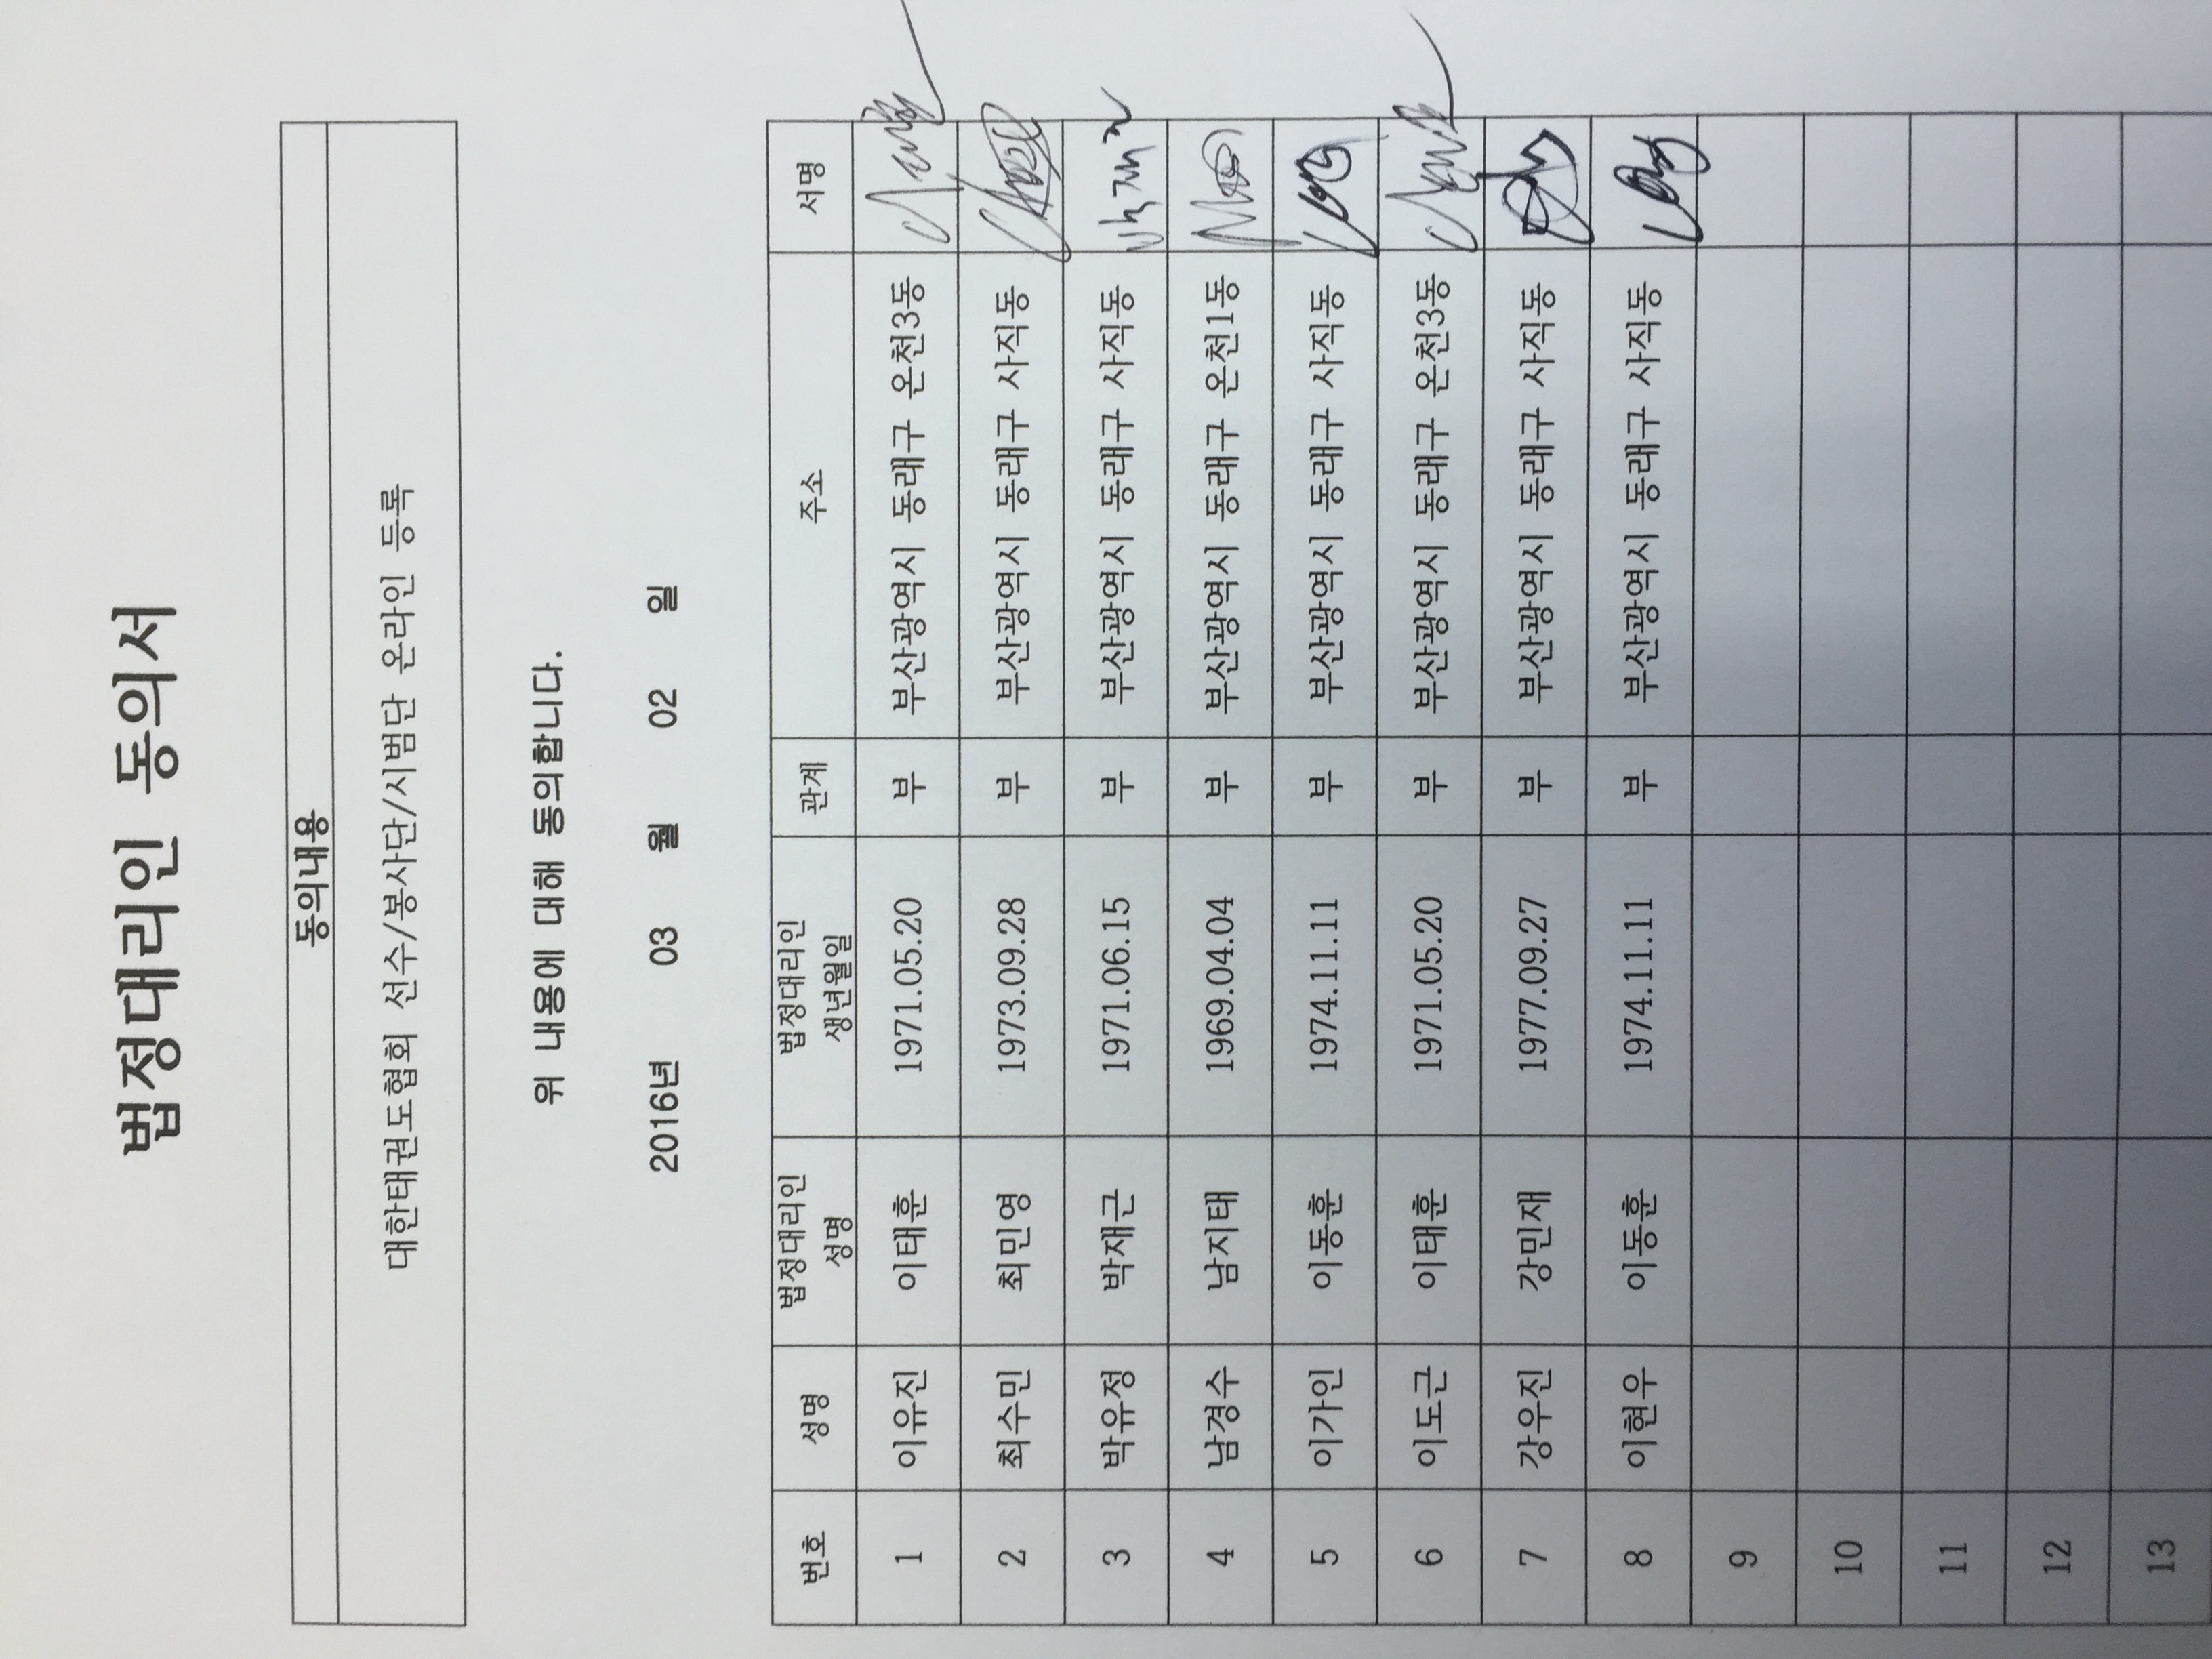 법정대리인 동의서
동의내용
대한태권도협회 선수/봉사단/시범단 온라인 등록
위 내용에 대해 동의합니다.
2016년 03 월 02 일
번호 성명 법정대리인 성명 법정대리인 생년월일 관계 주소 서명
1 이유진 이태훈 1971.05.20 부 부산광역시 동래구 온천3동
2 최수민 최민영 1973.09.28 부 부산광역시 동래구 사직동
3 박유정 박재근 1971.06.15 부 부산광역시 동래구 사직동
4 남경수 남지태 1969.04.04 부 부산광역시 동래구 온천1동
5 이가인 이동훈 1974.11.11 부 부산광역시 동래구 사직동
6 이도근 이태훈 1971.05.20 부 부산광역시 동래구 온천3동
7 강우진 강민재 1977.09.27 부 부산광역시 동래구 사직동
8 이현우 이동훈 1974.11.11 부 부산광역시 동래구 사직동
9
10
11
12
13